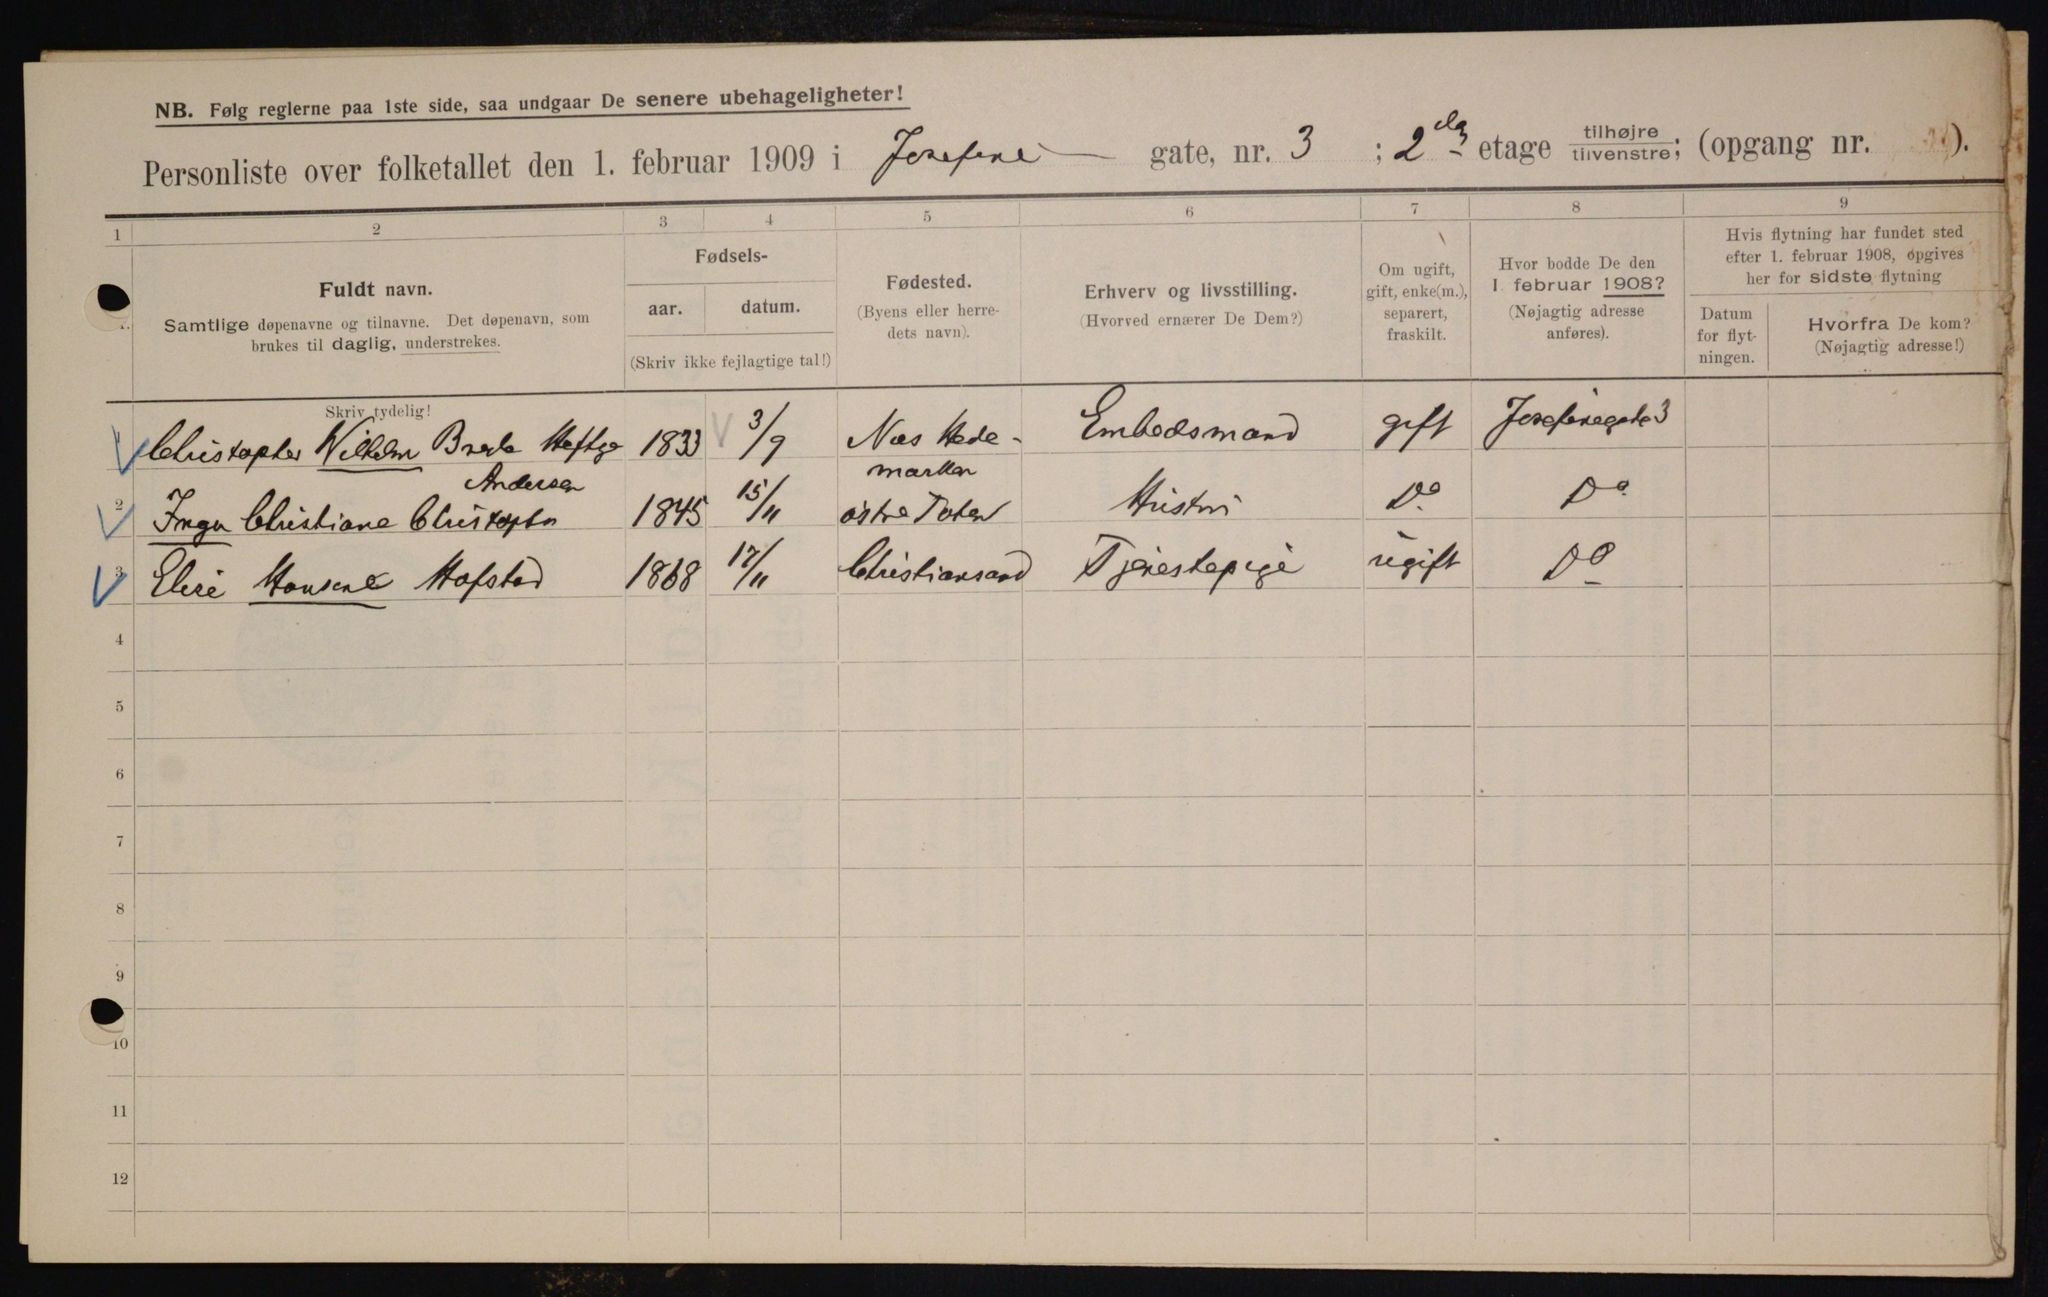 NB. Følg reglerne paa 1ste side, saa undgaar De senere ubehageligheter!
Personliste over folketallet den 1. februar 1909 i Josefine gate, nr. 3 ; 2den etage tilhøjre / tilvenstre; (opgang nr. ).
1 2 3 4 5 6 7 8 9
Fuldt navn.
Samtlige døpenavne og tilnavne. Det døpenavn, som
brukes til daglig, understrekes.
Skriv tydelig!
Fødsels-
aar. datum.
(Skriv ikke fejlagtige tal!)
Fødested.
(Byens eller herre-
dets navn).
Erhverv og livsstilling.
(Hvorved ernærer De Dem?)
Om ugift,
gift, enke(m.),
separert,
fraskilt.
Hvor bodde De den
1. februar 1908?
(Nøjagtig adresse
anføres).
Hvis flytning har fundet sted
efter 1. februar 1908, opgives
her for sidste flytning
Datum
for flyt-
ningen.
Hvorfra De kom?
(Nøjagtig adresse!)
Christopher Wilhelm 1833 3/9 Næs Hede- Embedsmand gift Josefinegate 3
marken
Andersen
2 Inga Christiane 1845 15/11 østre Toten Hustru Do Do
3 Elise Hansine Hofstad 1868 17/11 Christiansand Tjenestepige ugift Do
4
5
6
7
8
9
10
11
12